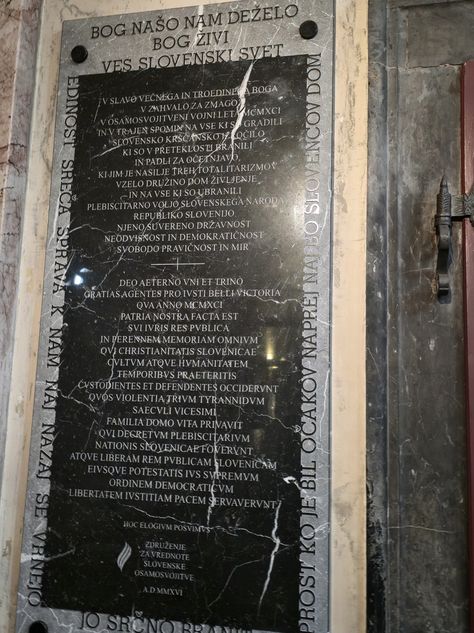 BOG NAŠO NAM DEŽELO
BOG ŽIVI
VES SLOVENSKI SVET
EDINOST SREČA SPRAVA K NAM NAJ NAZAJ SE VRNEJO
V SLAVO VEČNEGA IN TROEDINEGA BOGA
V ZAHVALO ZA ZMAGO
V OSAMOSVOJITVENI VOJNI LETA MCMXCI
IN V TRAJEN SPOMIN NA VSE KI SO GRADILI
SLOVENSKO KRŠČANSKO IZROČILO
KI SO V PRETEKLOSTI BRANILI
IN PADLI ZA OČETNJAVO
KI JIM JE NASILJE TREH TOTALITARIZMOV
VZELO DRUŽINO DOM ŽIVLJENJE
IN NA VSE KI SO UBRANILI
PLEBISCITARNO VOLJO SLOVENSKEGA NARODA
REPUBLIKO SLOVENIJO
NJENO SUVERENO DRŽAVNOST
NEODVISNOST IN DEMOKRATIČNOST
SVOBODO PRAVIČNOST IN MIR
DEO AETERNO VNI ET TRINO
GRATIAS AGENTES PRO IVSTI BELLI VICTORIA
QVA ANNO MCMXCI
PATRIA NOSTRA FACTA EST
SVI IVRIS RES PVBLICA
IN PERENNEM MEMORIAM OMNIVM
QVI CHRISTIANITATIS SLOVENICAE
CVLTVM ATQVE HVMANITATEM
TEMPORIBVS PRAETERITIS
CVSTODIENTES ET DEFENDENTES OCCIDERVNT
QVOS VIOLENTIA TRIVM TYRANNIDVM
SAECVLI VICESIMI
FAMILIA DOMO VITA PRIVAVIT
QVI DECRETVM PLEBISCITARIVM
NATIONIS SLOVENICAE FOVERVNT
ATQVE LIBERAM REM PVBLICAM SLOVENICAM
EIVSQVE POTESTATIS IVS SVPREMVM
ORDINEM DEMOCRATICVM
LIBERTATEM IVSTITIAM PACEM SERVAVERVNT
HOC ELOGIVM POSVIMVS
ZDRUŽENJE
ZA VREDNOTE
SLOVENSKE
OSAMOSVOJITVE
A.D MMXVI
PROST KO JE BIL OČAKOV NAPREJ NAJ BO SLOVENCOV DOM
JO SRČNO